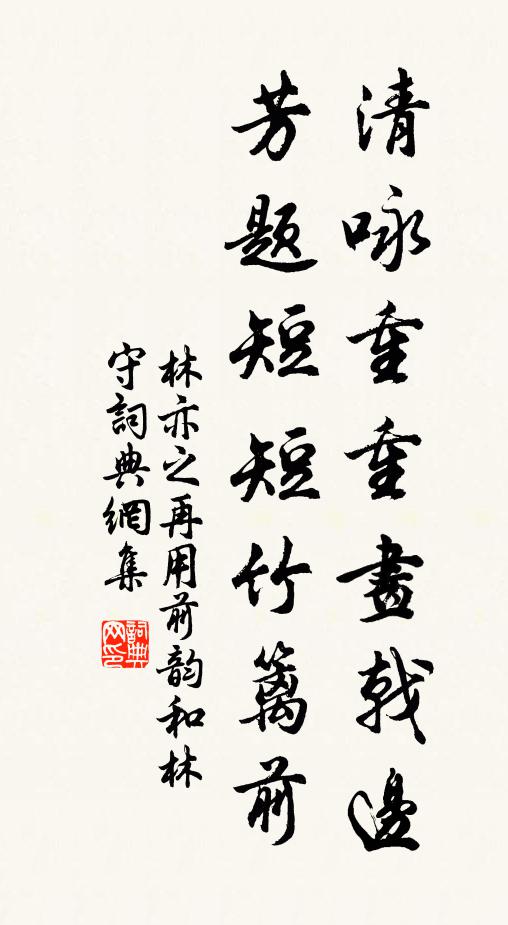 清咏重重畫戟邊
芳題短短竹篱前
林亦之再用前韵和林
守詞典網集
詞典
网印